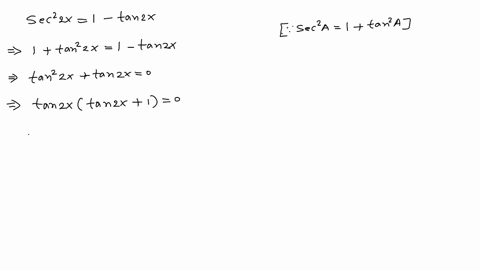 Sec²2x = 1 - tan2x
[∵ Sec²A = 1 + tan²A]
⇒ 1 + tan²2x = 1 - tan2x
⇒ tan²2x + tan2x = 0
⇒ tan2x (tan2x + 1) = 0